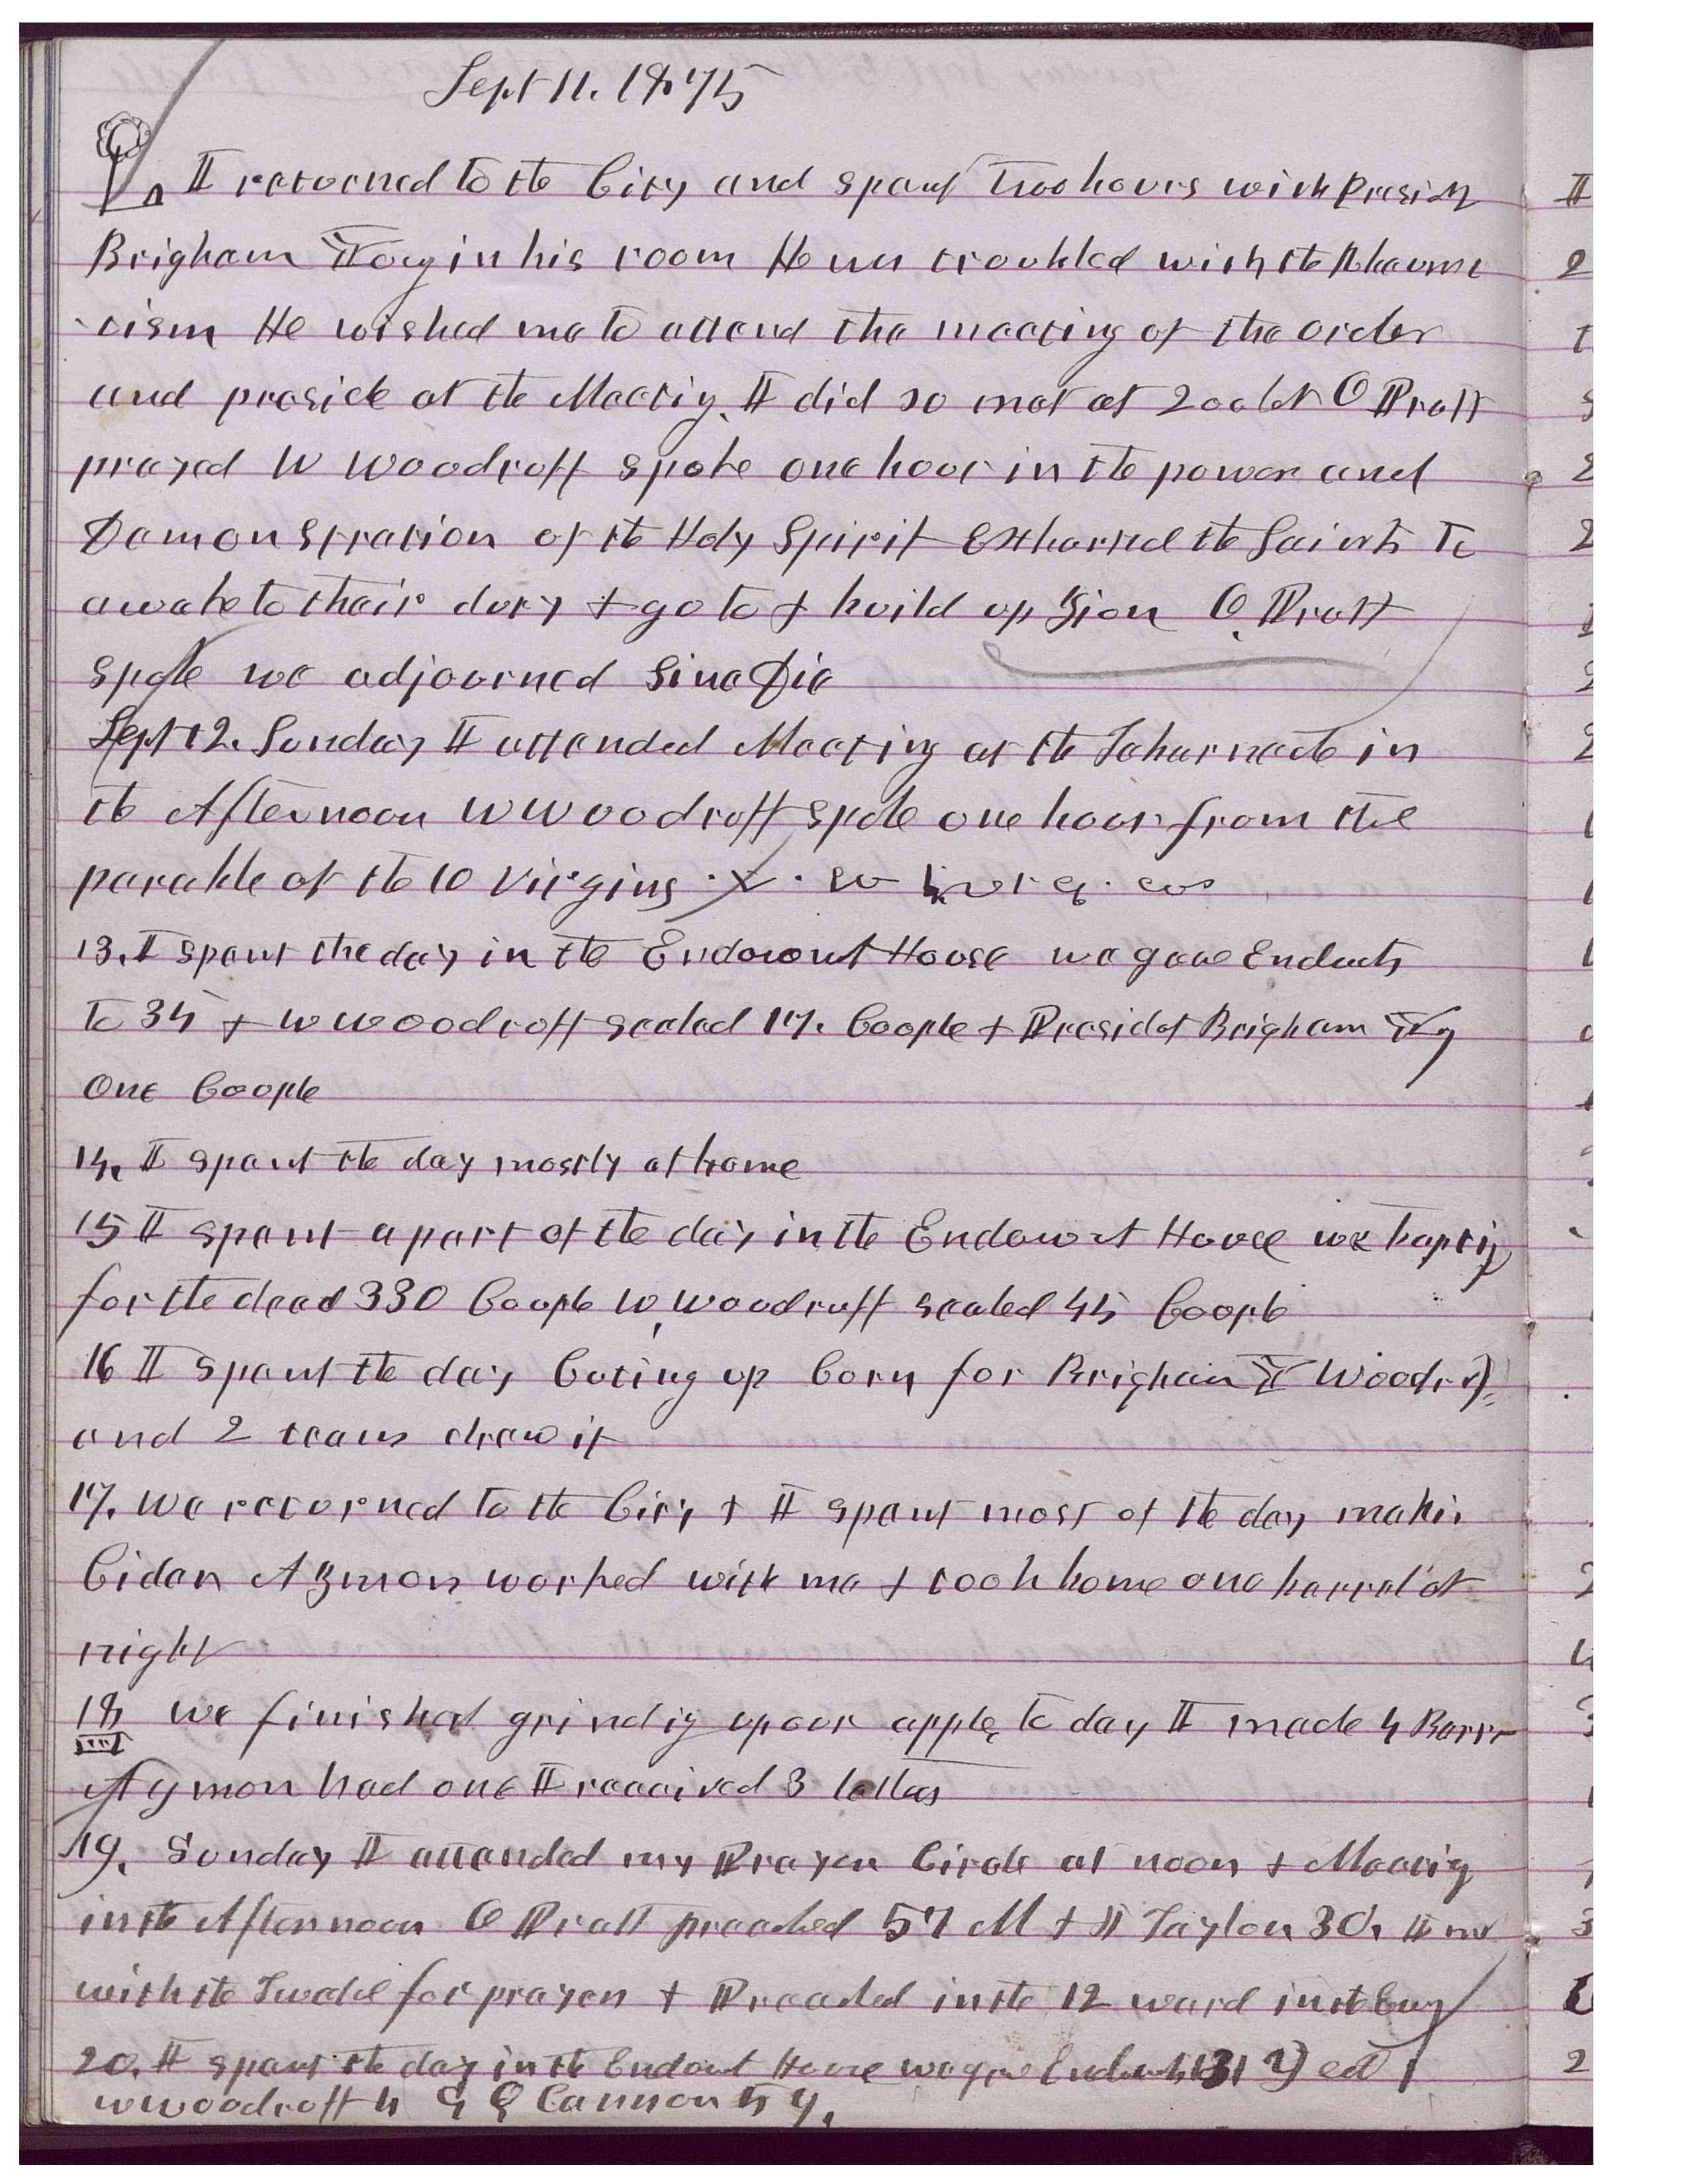 Sept 11. 1875
I returned to the City and spent two hours with Presidt
Brigham Young in his room He was troubled with the Rheuma
tism He wished me to attend the meeting of the order
and preside at the Meeting. I did so met at 2 oclok O Pratt
prayed W Woodruff spoke one hour in the power and
Demonstration of the Holy Spirit Exhorted the Saints to
awake to their duty & go to & build up Zion O. Pratt
spoke we adjourned Sine Die
Sept 12. Sunday I attended Meeting at the Tabernacle in
the Afternoon W Woodruff spoke one hour from the
parable of the 10 Virgins
13. I spent the day in the Endowmt House we gave Endmts
to 34 & W Woodruff sealed 17. Couple & Presidet Brigham Yg
one Couple
14. I spent the day mostly at home
15 I spent a part of the day in the Endowmt House we baptiz
for the dead 330 Couple W. Woodruff sealed 45 Couple
16 I spent the day Cuting up Corn for Brigham Y Woodruff
and 2 teams drew it
17. We returned to the City & I spent most of the day makin
Cider Azmon worked with me & took home one barrel at
night
18 We finished grindig up our apples to day I made 4 Barr
Azmon had one I received 3 letters
19. Sunday I attended my Prayer Circle at noon & Meetig
in the Afternoon O Pratt preached 57 M & J Taylor 30. I met
with the Twelve for prayer & Preached in the 12 ward in the Eveng
20. I spent the day in the Endowt House we gave Endowmts 131
W Woodruff 4 G Q Cannon